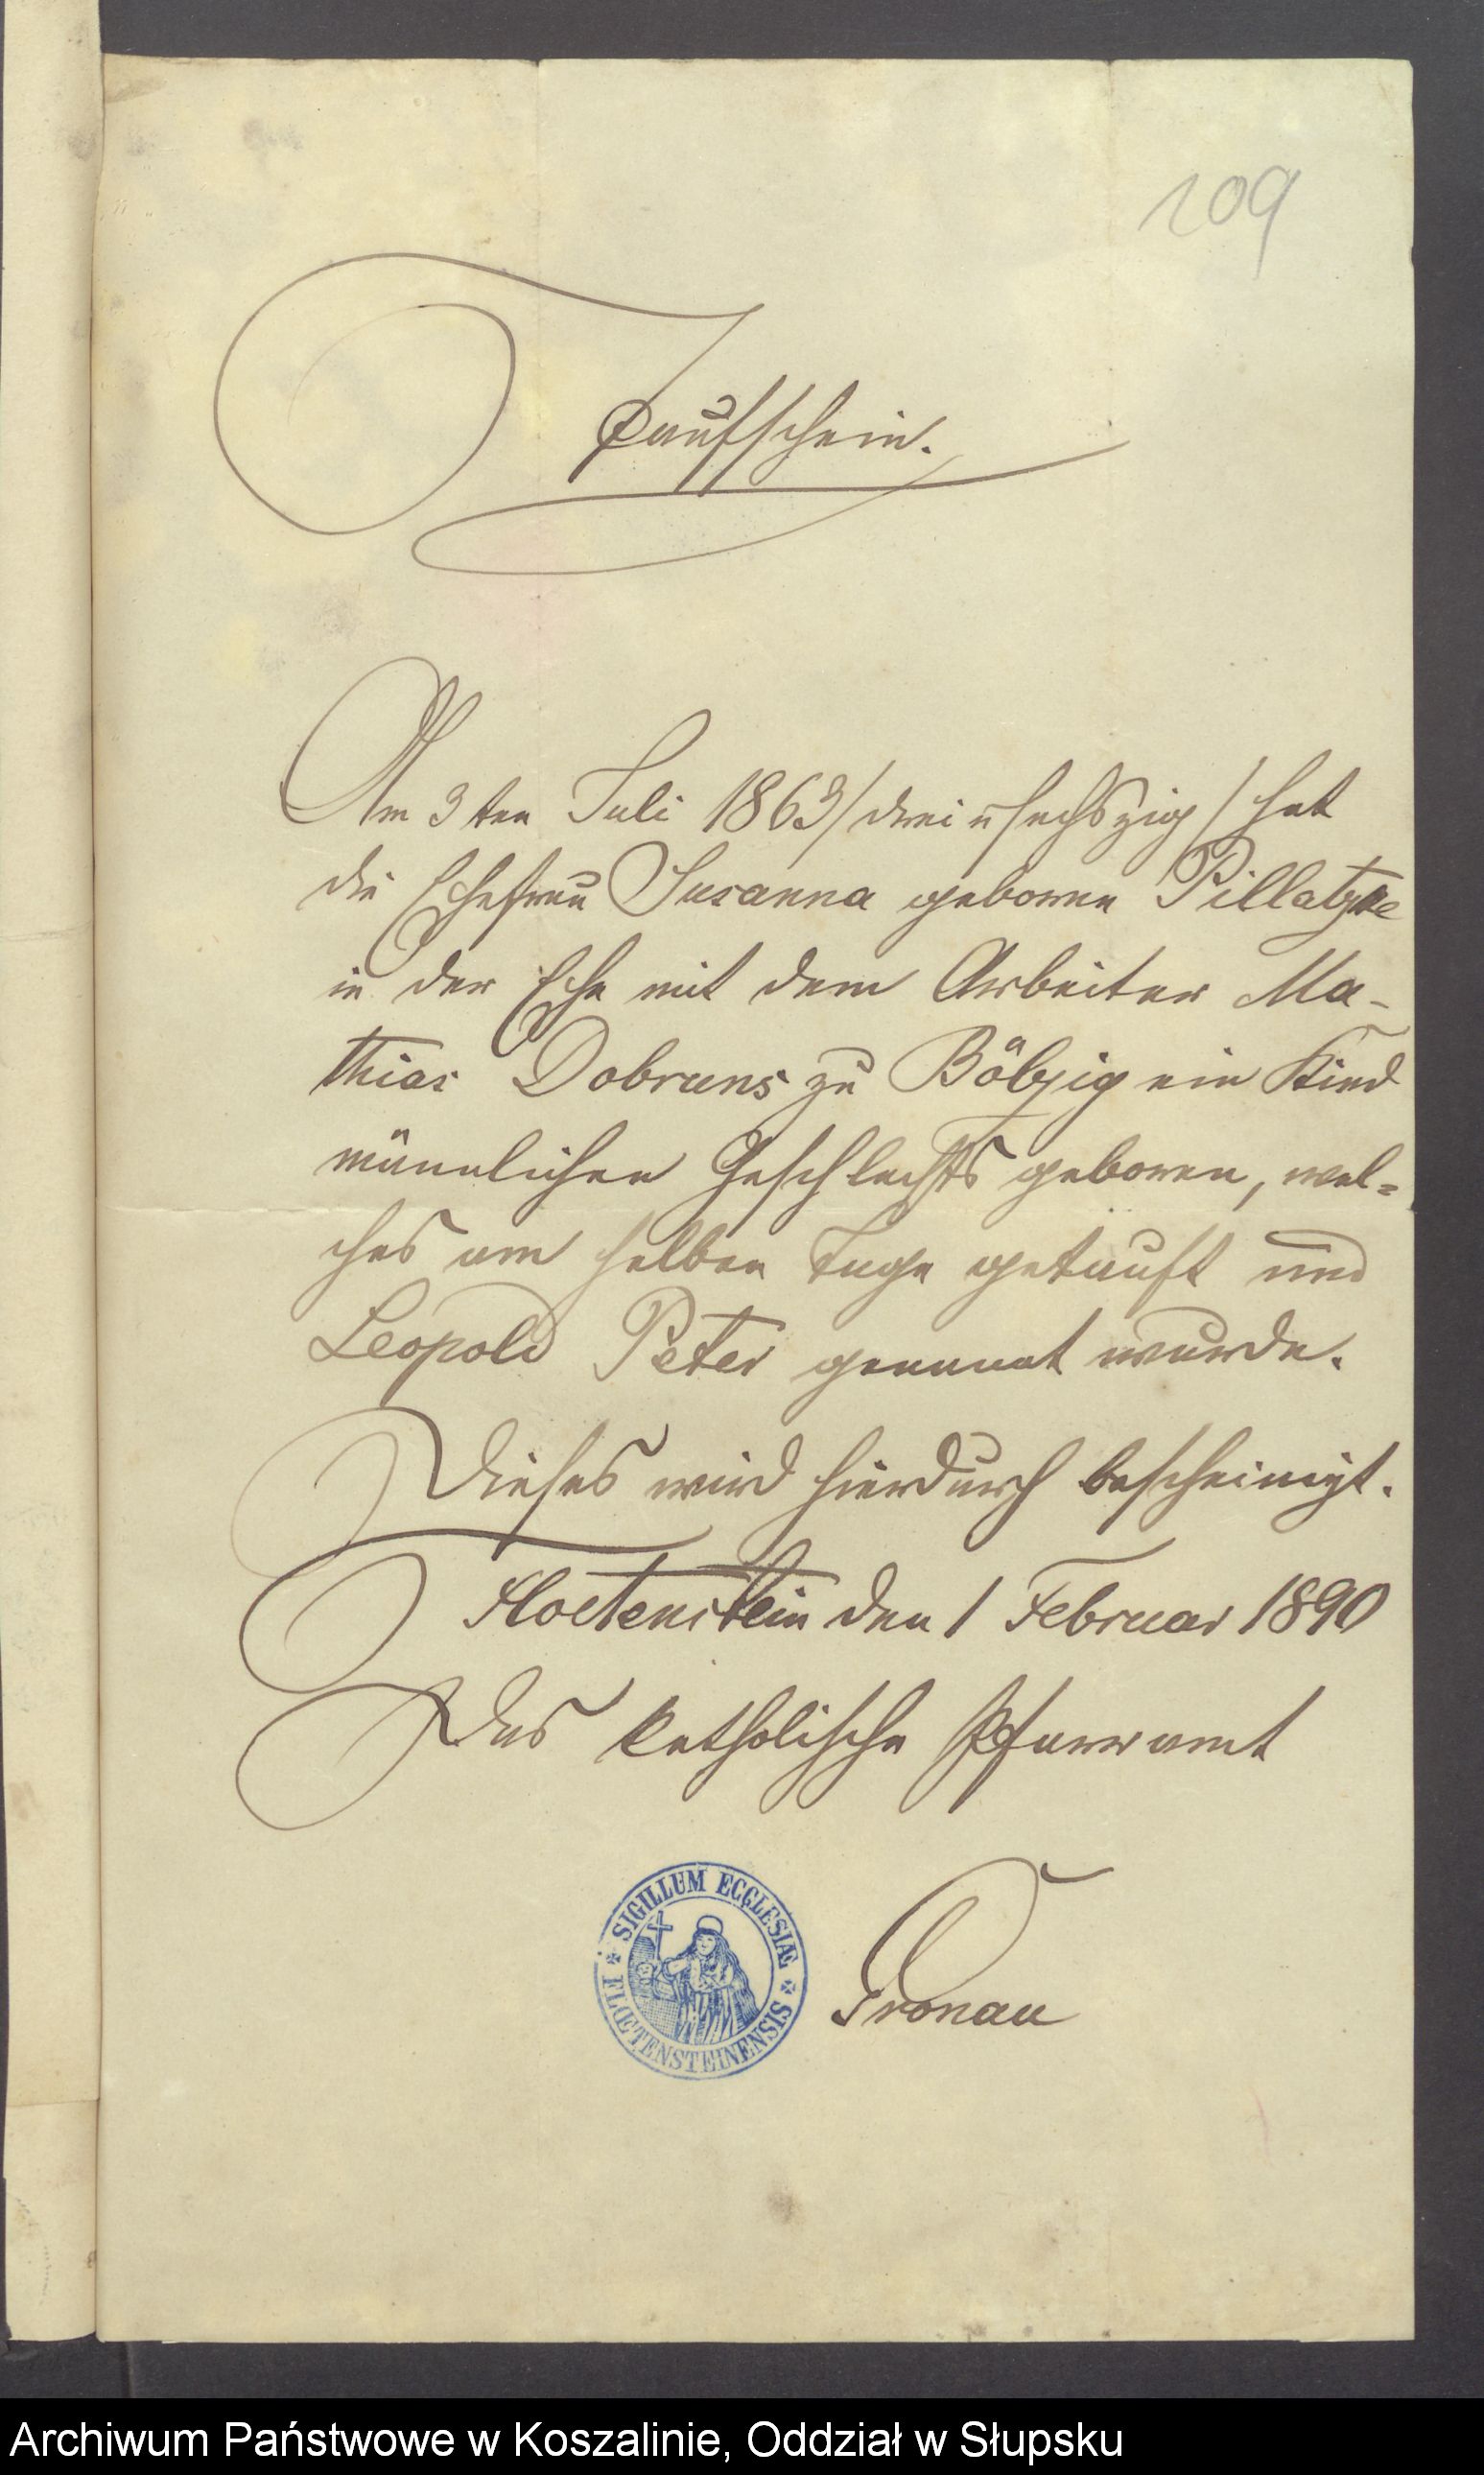 109
Taufschein.
Am 3ten Juli 1863/ drei u sechszig / hat
die Ehefrau Susanna geborene Pillatzke
in der Ehe mit dem Arbeiter Ma-
thias Dobruns zu Bölzig ein Kind
männlichen Geschlechts geboren, wel=
ches am selben Tage getauft und
Leopold Peter genannt wurde.
Dieses wird hierdurch bescheinigt.
Floetenstein den 1 Februar 1890
Das katholische Pfarramt
SIGILLUM ECCLESIÆ
FLŒTENSTEINENSIS
Gronau
Archiwum Państwowe w Koszalinie, Oddział w Słupsku